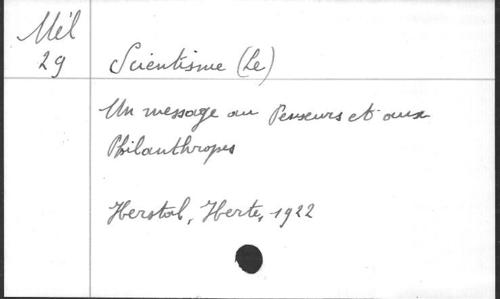 Mél
29
Scientisme (Le)
Un message au Penseurs et aux
Philanthropes
Herstal, Herte, 1922